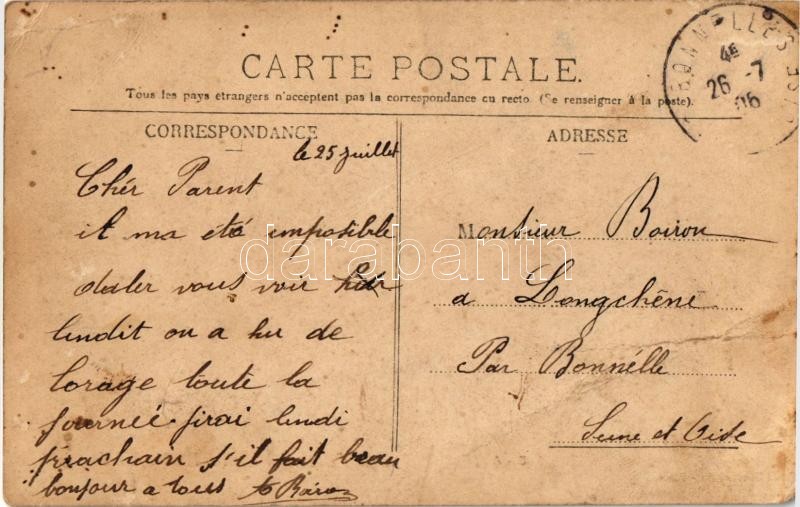 CARTE POSTALE.
Tous les pays étrangers n'acceptent pas la correspondance au recto. (Se renseigner à la poste).
CORRESPONDANCE
le 25 juillet
Chér Parent
il ma été imposible
daler vous voir hier
lundit on a hu de
lorage toute la
journeé jirai lundi
prachain s'il fait beau
bonjour a tous
ADRESSE
Monsieur Boiron
a Longchêne
Par Bonnélle
Seine et Oise
BONNELLES
4E
26 -7
06
darabanth